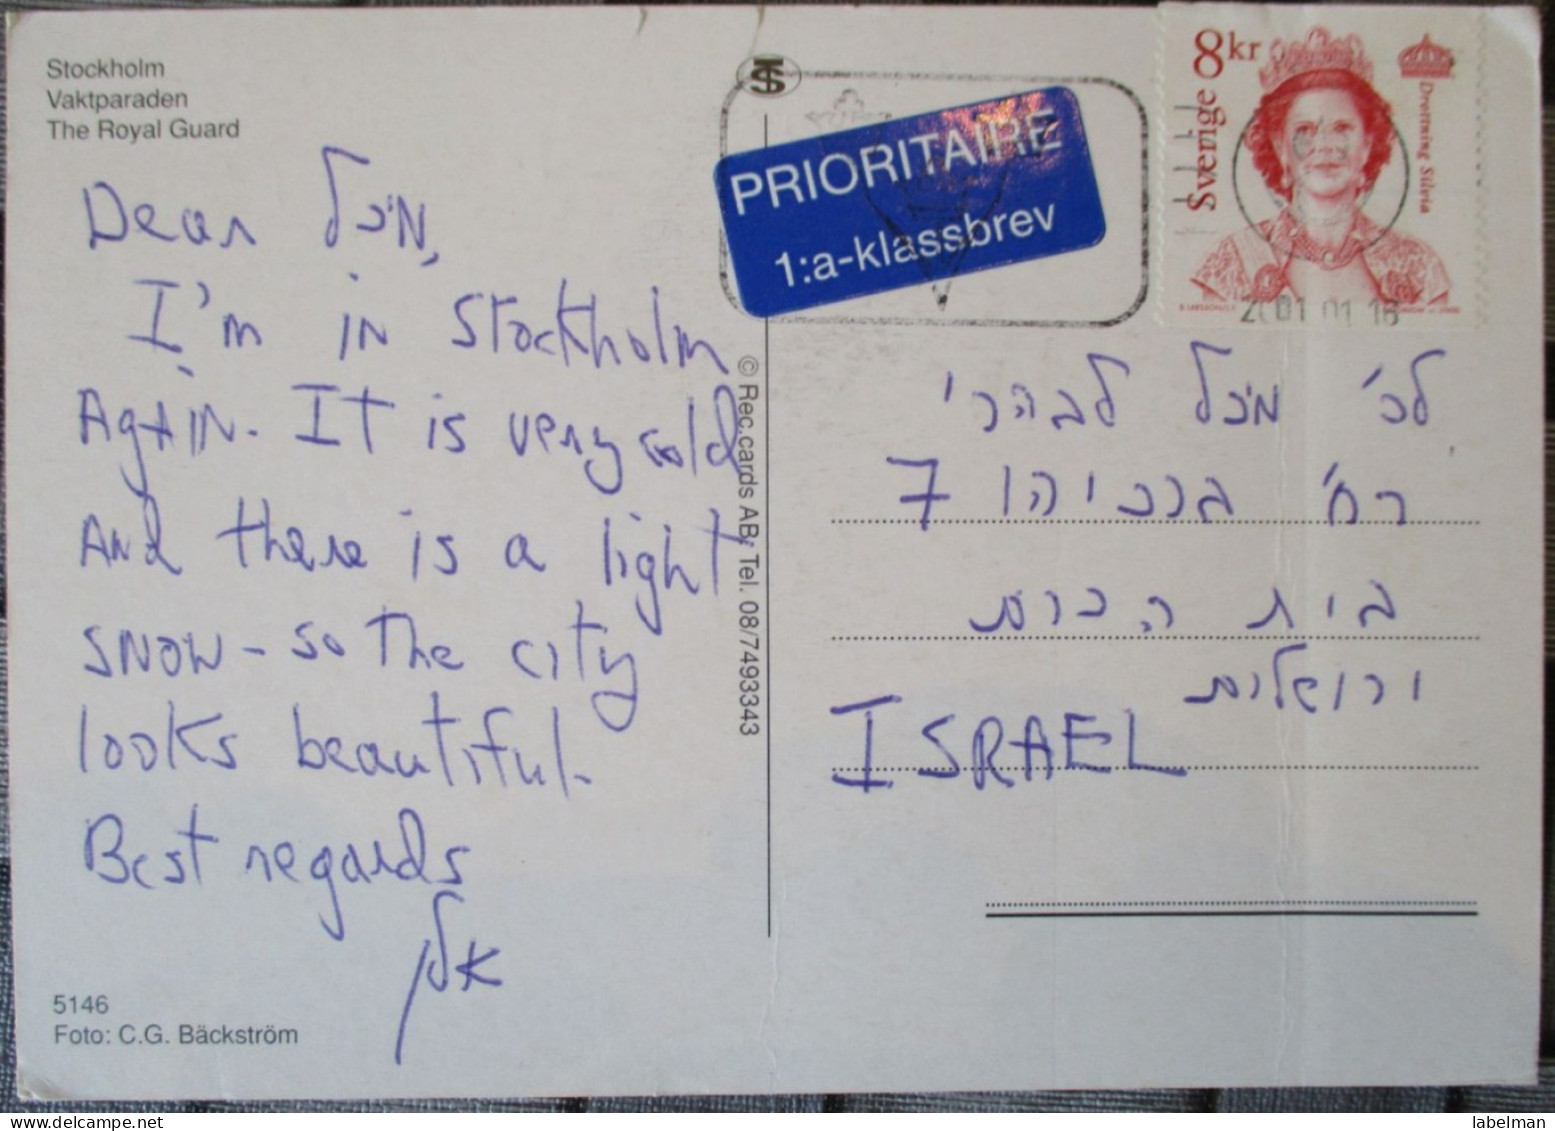 Stockholm
Vaktparaden
The Royal Guard
Dear מיכל,
I'm in Stockholm
Again. It is very cold
And there is a light
snow - so the city
looks beautiful.
Best regards
5146
Foto: C.G. Bäckström
© Rec.cards AB, Tel. 08/7493343
PRIORITAIRE
1:a-klassbrev
Sverige 8kr
Drottning Silvia
2001 01 16
לכ' מיכל לבהרי
רח' ברכיהו 7
בית הכרם
ירושלים
ISRAEL
labelman